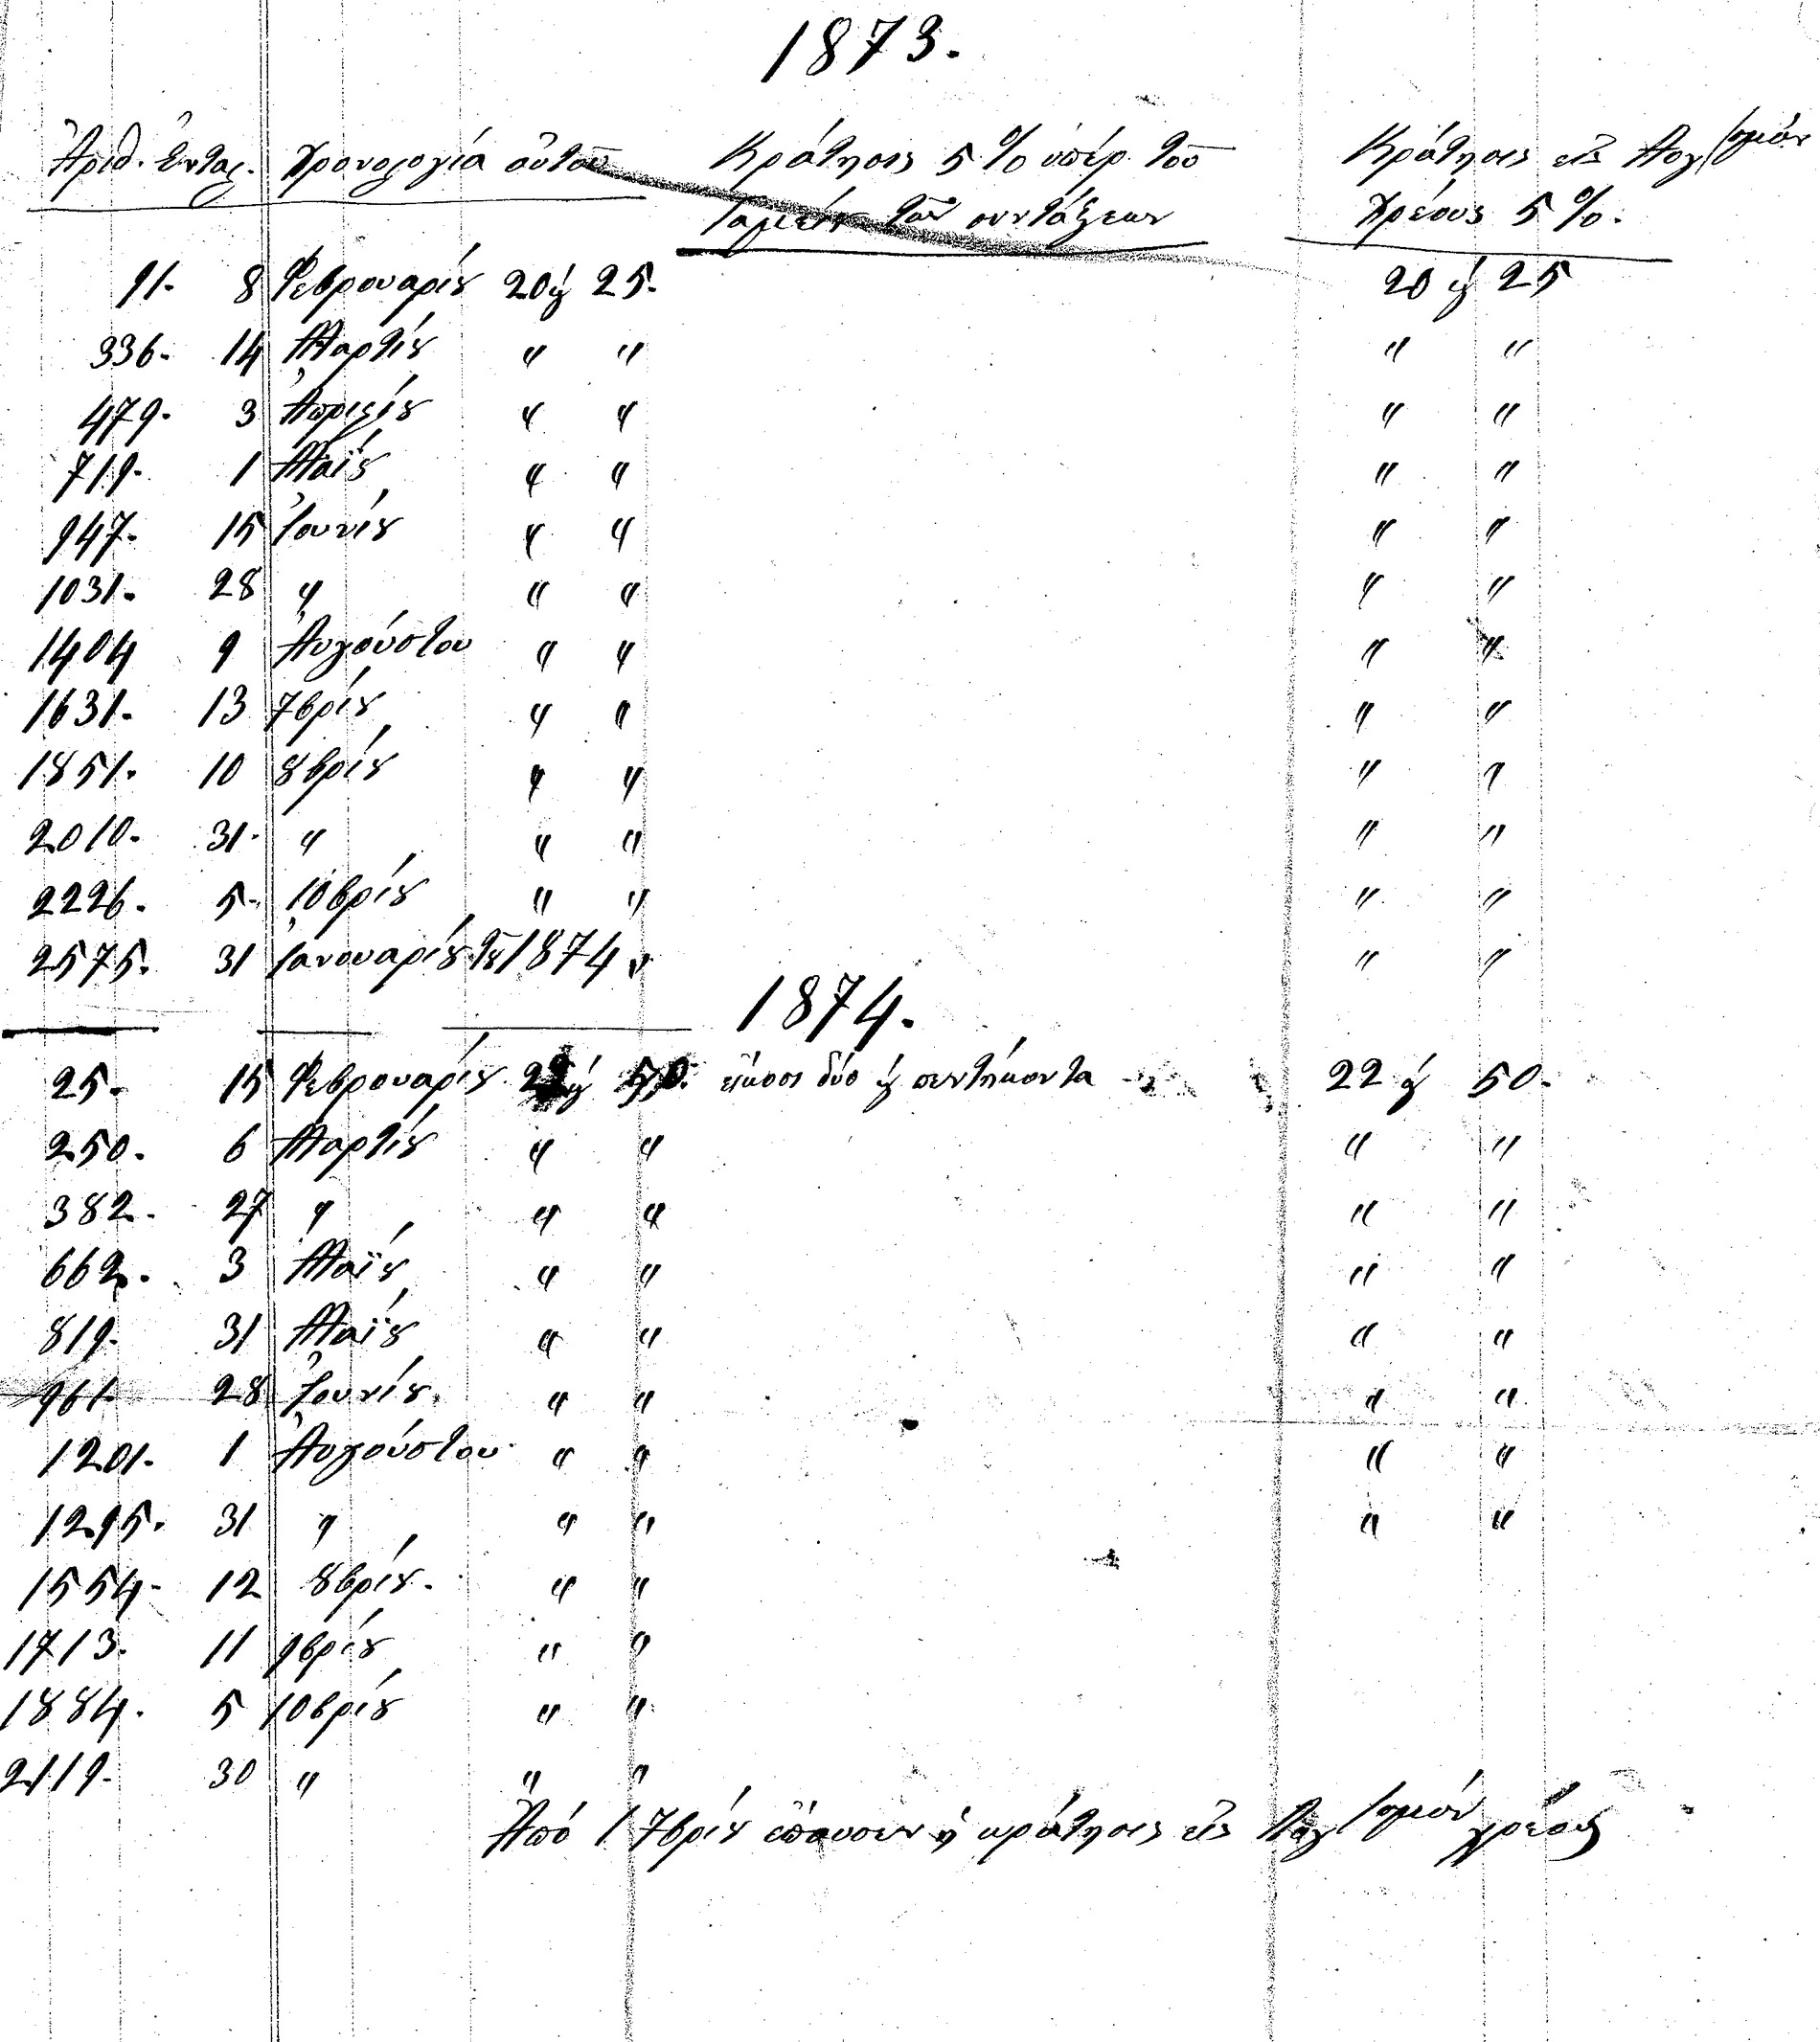 1873.
Ἀριθ. Ἐνταλ. Χρονολογία αὐτοῦ Κράτησις 5 % ὑπὲρ τοῦ Κράτησις εἰς
ταμείου τῶν συντάξεων χρέους 5 %.
91. 8 Φεβρουαρίου 20 ϗ 25. 20 ϗ 25
336. 14 Μαρτίου " " " "
479. 3 Ἀπριλίου " " " "
719. 1 Μαΐου " " " "
947. 15 Ἰουνίου " " " "
1031. 28 " " " " "
1404 9 Αὐγούστου " " " "
1631. 13 7βρίου " " " "
1851. 10 8βρίου " " " "
2010. 31. " " " " "
2226. 5. 10βρίου " " " "
2575. 31 Ἰανουαρίου τοῦ 1874 " " "
1874.
25. 15 Φεβρουαρίου 22 ϗ 50. εἴκοσι δύο ϗ πεντήκοντα 22 ϗ 50.
250. 6 Μαρτίου " " " "
382. 27 " " " " "
662. 3 Μαΐου " " " "
819. 31 Μαΐου " " " "
961. 28 Ἰουνίου. " " " "
1201. 1 Αὐγούστου " " " "
1295. 31 " " " " "
1554. 12 8βρίου. " "
1713. 11 9βρίου " "
1884. 5 10βρίου " "
2119. 30 " " "
Ἀπὸ 1 7βρίου ἔπαυσεν ἡ κράτησις εἰς χρέους